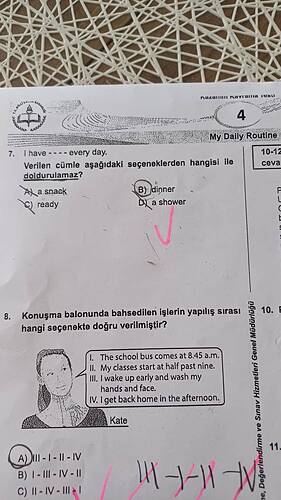 Kazanım Kavrama Testi
4
My Daily Routine
7. I have - - - - every day.
Verilen cümle aşağıdaki seçeneklerden hangisi ile
doldurulamaz?
A) a snack
B) dinner
C) ready
D) a shower
10-12
ceva
8. Konuşma balonunda bahsedilen işlerin yapılış sırası
hangi seçenekte doğru verilmiştir?
I. The school bus comes at 8.45 a.m.
II. My classes start at half past nine.
III. I wake up early and wash my
hands and face.
IV. I get back home in the afternoon.
Kate
A) III - I - II - IV
B) I - III - IV - II
C) II - IV - III - I
III - I - II - IV
10.
11.
me, Değerlendirme ve Sınav Hizmetleri Genel Müdürlüğü